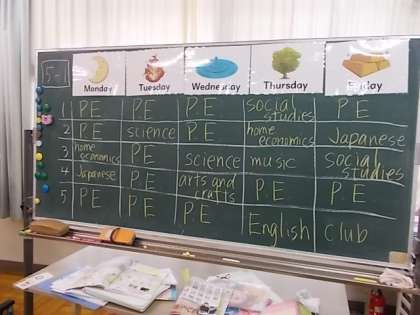 5-1 Monday Tuesday Wednesday Thursday Friday
1 P.E P.E P.E social studies P.E
2 P.E science P.E home economics Japanese
3 home economics P.E science music social studies
4 Japanese P.E arts and crafts P.E P.E
5 P.E P.E P.E English Club